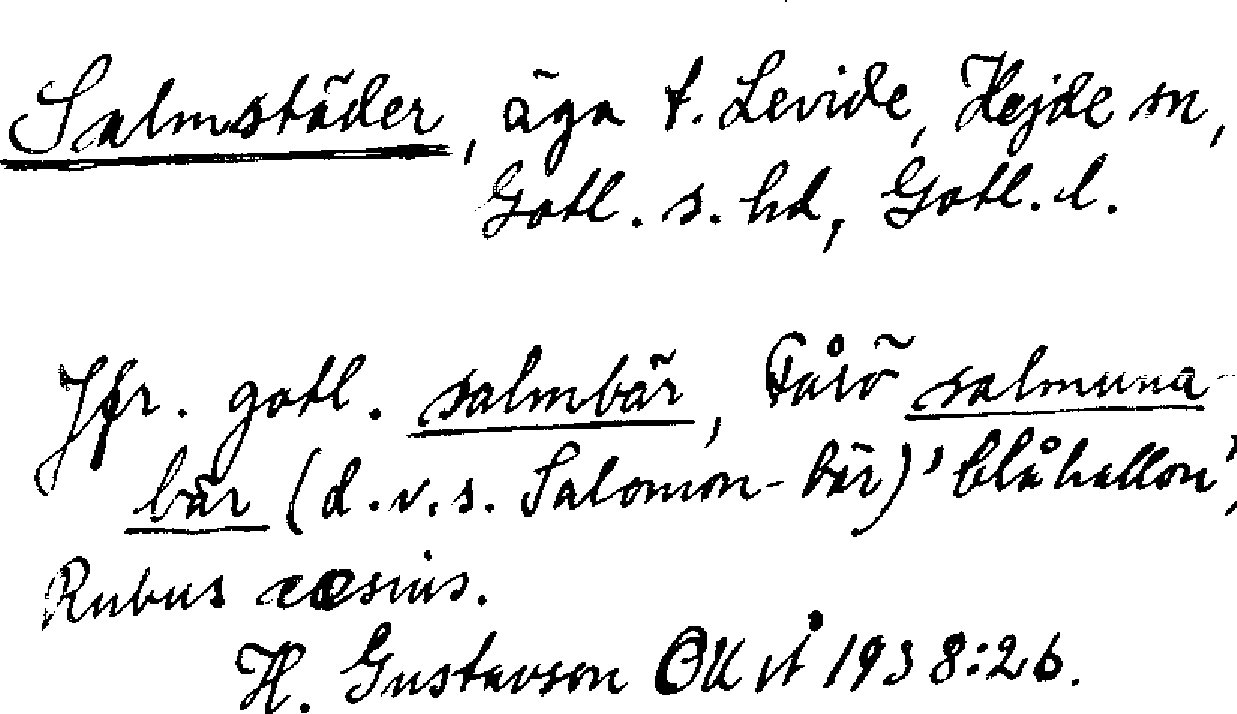 Salmstäder, äga t. Levide, Hejde sn,
Gotl. s. hd, Gotl. l.
Jfr. gotl. salmbär, Fårö salmuna-
bär (d.v.s. Salomon-bär) 'blåhallon',
Rubus cæsius.
H. Gustavson OUÅ 1938:26.